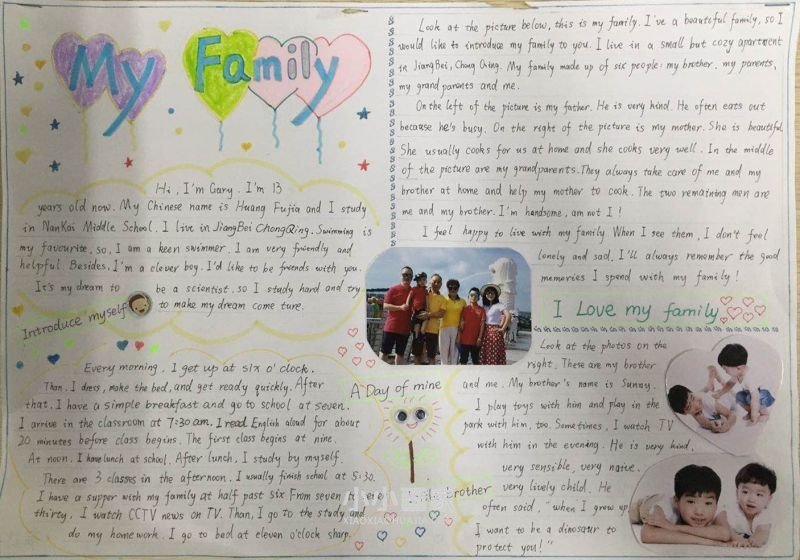 My Family
Hi, I'm Gary. I'm 13
years old now. My Chinese name is Huang Fujia and I study
in NanKai Middle School. I live in JiangBei ChongQing. Swimming is
my favourite, so, I am a keen swimmer. I am very friendly and
helpful. Besides, I'm a clever boy. I'd like to be friends with you.
It's my dream to be a scientist. so I study hard and try
to make my dream come ture.
Introduce myself
Every morning, I get up at six o'clock.
Than, I dress, make the bed, and get ready quickly. After
that. I have a simple breakfast and go to school at seven.
I arrive in the classroom at 7:30 am. I read English aloud for about
20 minutes before class begins. The first class begins at nine.
At noon. I have lunch at school. After lunch, I study by myself.
There are 3 classes in the afternoon. I usually finish school at 5:30.
I have a supper with my family at half past six. From seven
thirty, I watch CCTV news on TV. Than, I go to the study and
do my homework. I go to bed at eleven o'clock sharp.
A Day of mine
Look at the picture below, this is my family. I've a beautiful family, so I
would like to introduce my family to you. I live in a small but cozy apartment
in JiangBei, Chong Qing. My family made up of six people: my brother, my parents,
my grandparents and me.
On the left of the picture is my father. He is very kind. He often eats out
because he's busy. On the right of the picture is my mother. She is beautiful.
She usually cooks for us at home and she cooks very well. In the middle
of the picture are my grandparents. They always take care of me and my
brother at home and help my mother to cook. The two remaining men are
me and my brother. I'm handsome, am not I!
I feel happy to live with my family. When I see them, I don't feel
lonely and sad. I'll always remember the good
memories I spend with my family!
I Love my family
Look at the photos on the
right. These are my brother
and me. My brother's name is Sunny.
I play toys with him and play in the
park with him, too. Sometimes, I watch TV
with him in the evening. He is very kind,
very sensible, very naive.
very lively child. He
often said, "when I grew up
I want to be a dinosaur to
protect you!"
brother
XIAOXIANHUAJIE